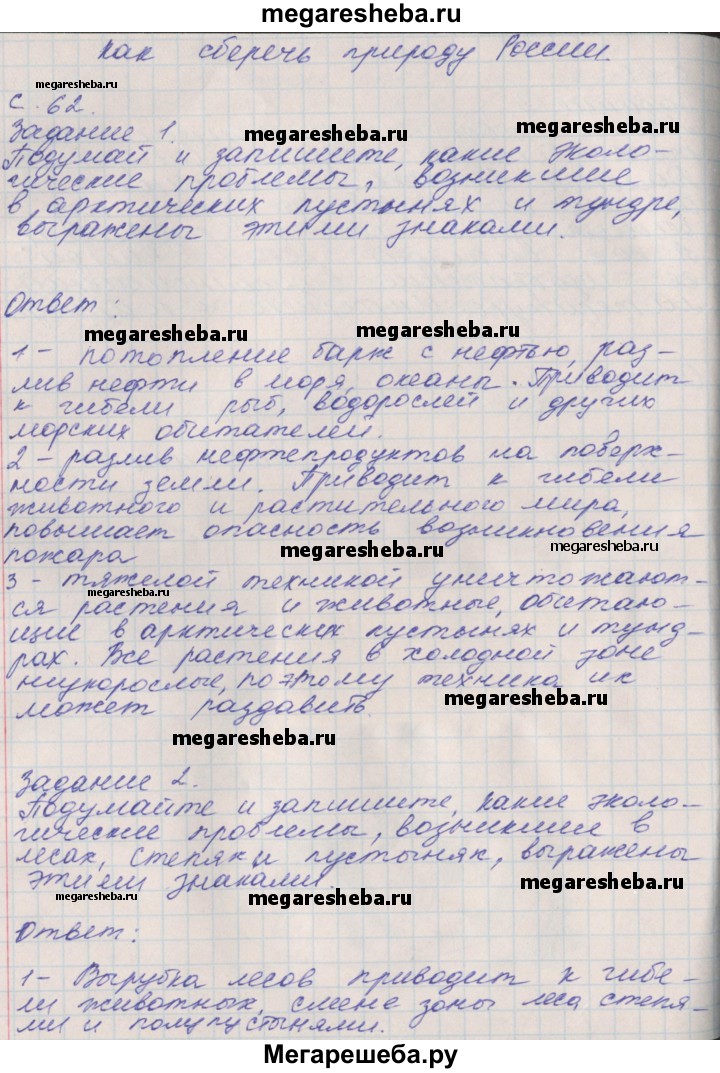 megaresheba.ru
Как сберечь природу России.
megaresheba.ru
с. 62.
Задание 1.
megaresheba.ru
megaresheba.ru
Подумай и запишете, какие эколо-
гические проблемы, возникшие
в арктических пустынях и тундре,
выражены этими знаками.
Ответ:
megaresheba.ru
megaresheba.ru
1 - потопление барж с нефтью, раз-
лив нефти в моря, океаны. Приводит
к гибели рыб, водорослей и других
морских обитателей.
2 - разлив нефтепродуктов на поверх-
ности земли. Приводит к гибели
животного и растительного мира,
повышает опасность возникновения
пожара
megaresheba.ru
megaresheba.ru
3 - тяжелой техникой уничтожают-
megaresheba.ru
ся растения и животные, обитаю-
щие в арктических пустынях и тунд-
рах. Все растения в холодной зоне
низкорослые, поэтому техника их
может раздавить.
megaresheba.ru
megaresheba.ru
Задание 2.
Подумайте и запишите, какие эколо-
гические проблемы, возникшие в
лесах, степях и пустынях, выражены
этими знаками.
megaresheba.ru
megaresheba.ru
megaresheba.ru
Ответ:
1 - Вырубка лесов приводит к гибе-
ли животных, смене зоны леса степя-
ми и полупустынями.
Мегарешеба.ру